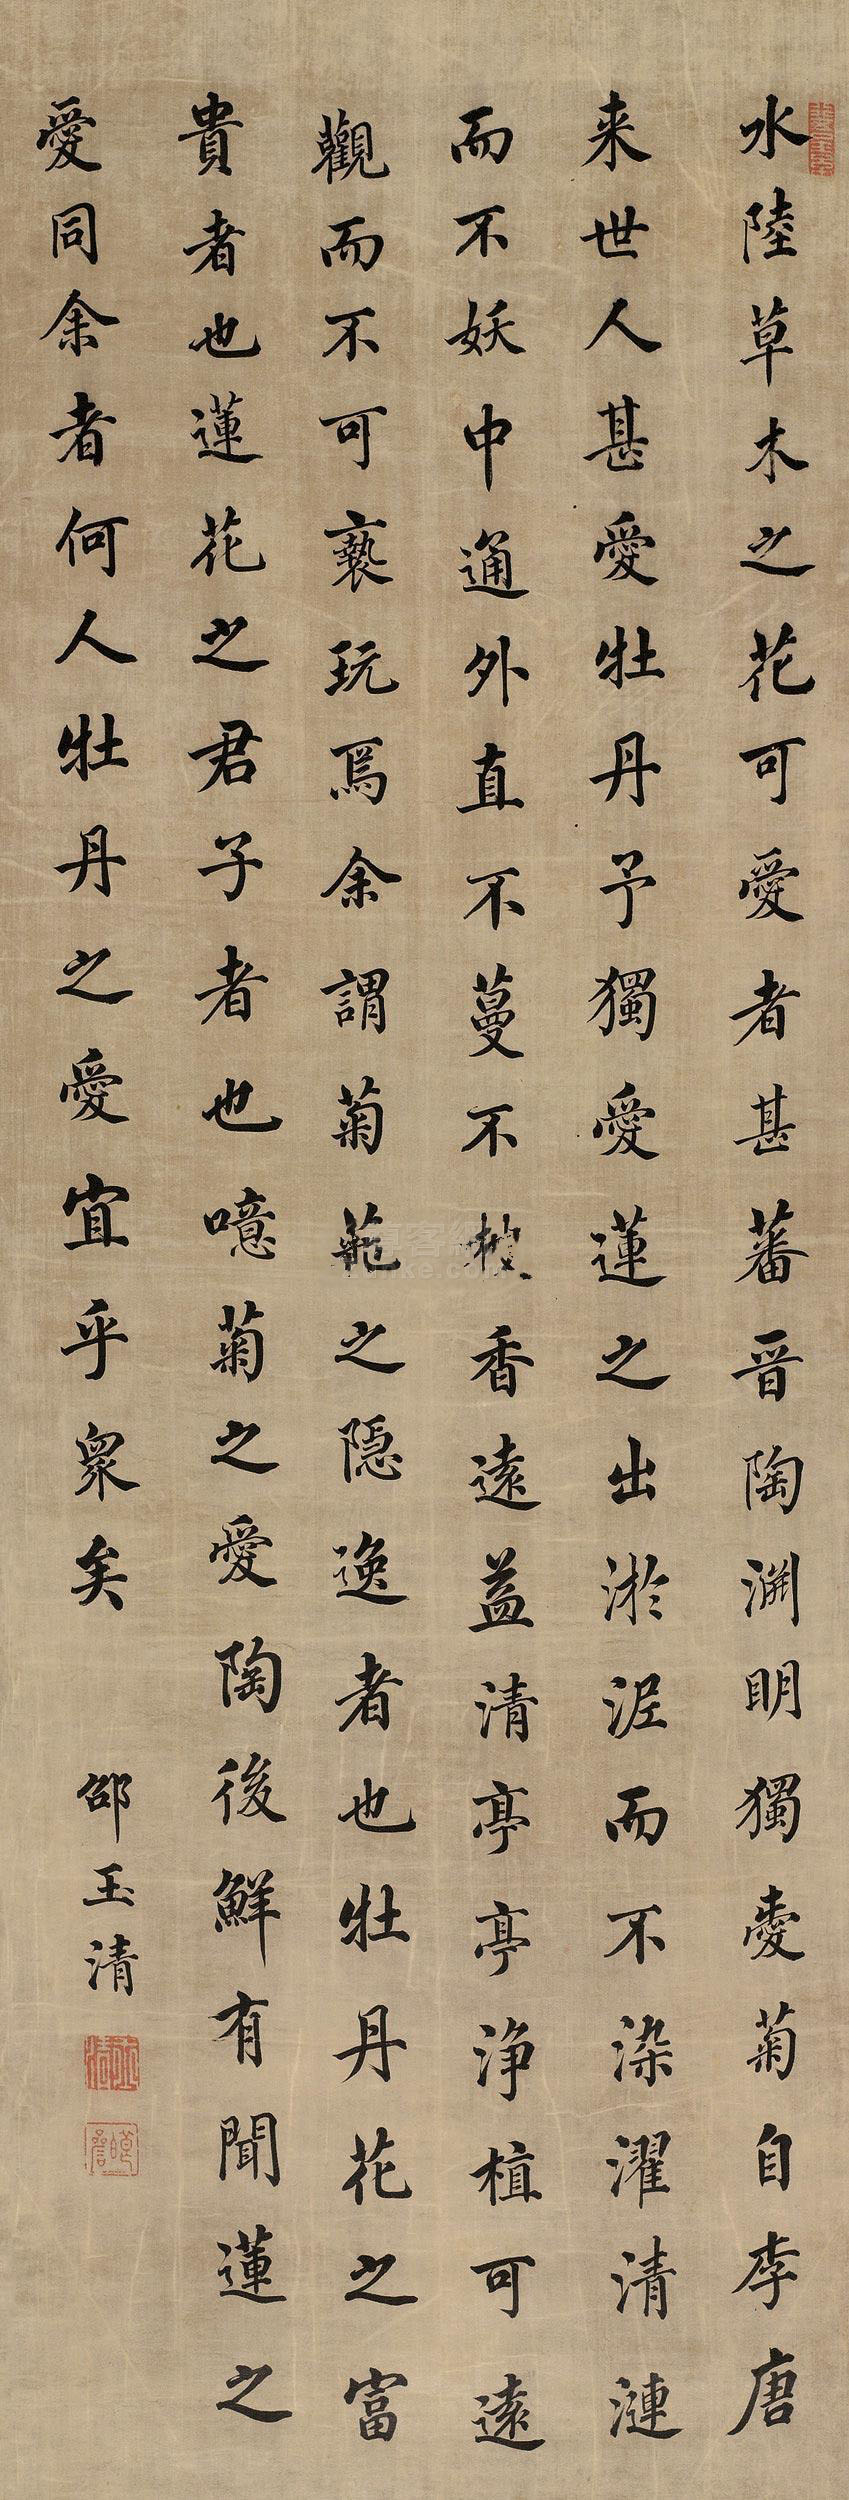 水陸草木之花可愛者甚蕃晉陶淵明獨愛菊自李唐
来世人甚愛牡丹予獨愛蓮之出淤泥而不染濯清漣
而不妖中通外直不蔓不枝香遠益清亭亭淨植可遠
觀而不可褻玩焉余謂菊花之隱逸者也牡丹花之富
貴者也蓮花之君子者也噫菊之愛陶後鮮有聞蓮之
愛同余者何人牡丹之愛宜乎眾矣
邵玉清